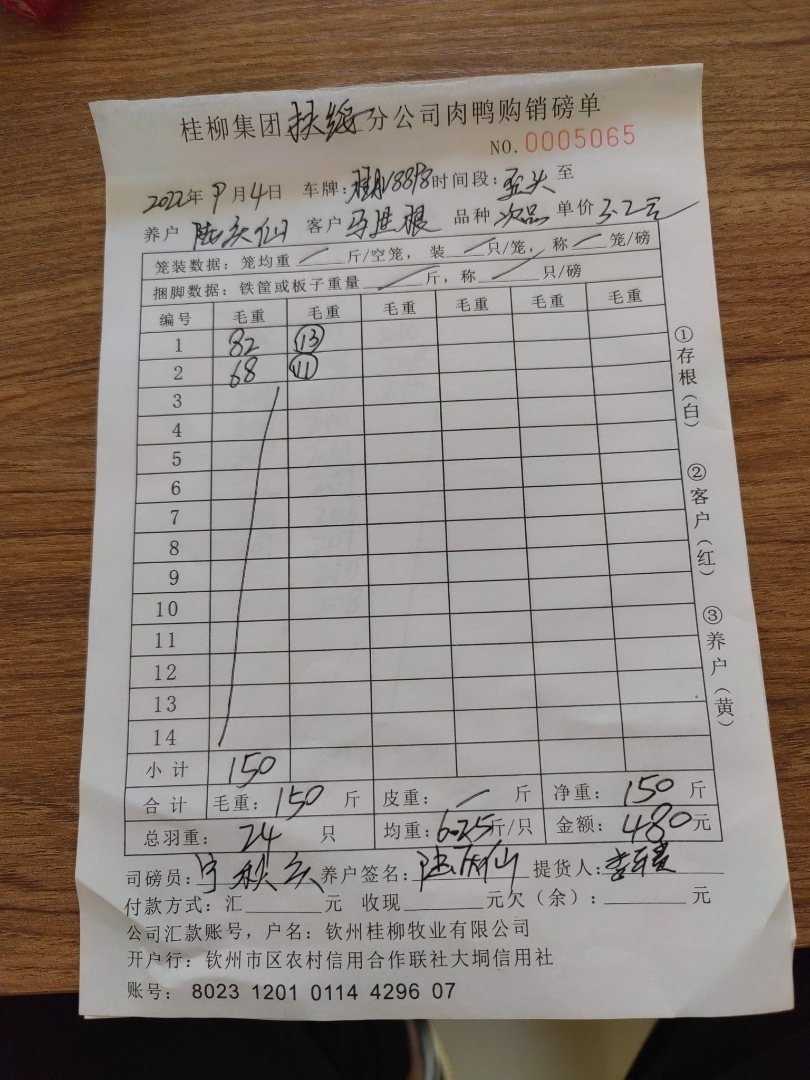 桂柳集团扶绥分公司肉鸭购销磅单
NO.0005065
2022年9月4日 车牌: 时间段: 至
养户 客户 马进根 品种 次品 单价 3.2元
笼装数据：笼均重 斤/空笼，装 只/笼，称 笼/磅
捆脚数据：铁筐或板子重量 斤，称 只/磅
编号 毛重 毛重 毛重 毛重 毛重 毛重
1 82 ⑬
2 68 ⑪
3
4
5
6
7
8
9
10
11
12
13
14
小计 150
合计 毛重：150 斤 皮重： 斤 净重：150 斤
总羽重：24 只 均重：6.25斤/只 金额：480元
司磅员： 养户签名： 提货人：
付款方式：汇 元 收现 元欠（余）： 元
公司汇款账号，户名：钦州桂柳牧业有限公司
开户行：钦州市区农村信用合作联社大垌信用社
账号：8023 1201 0114 4296 07
①存根（白） ②客户（红） ③养户（黄）